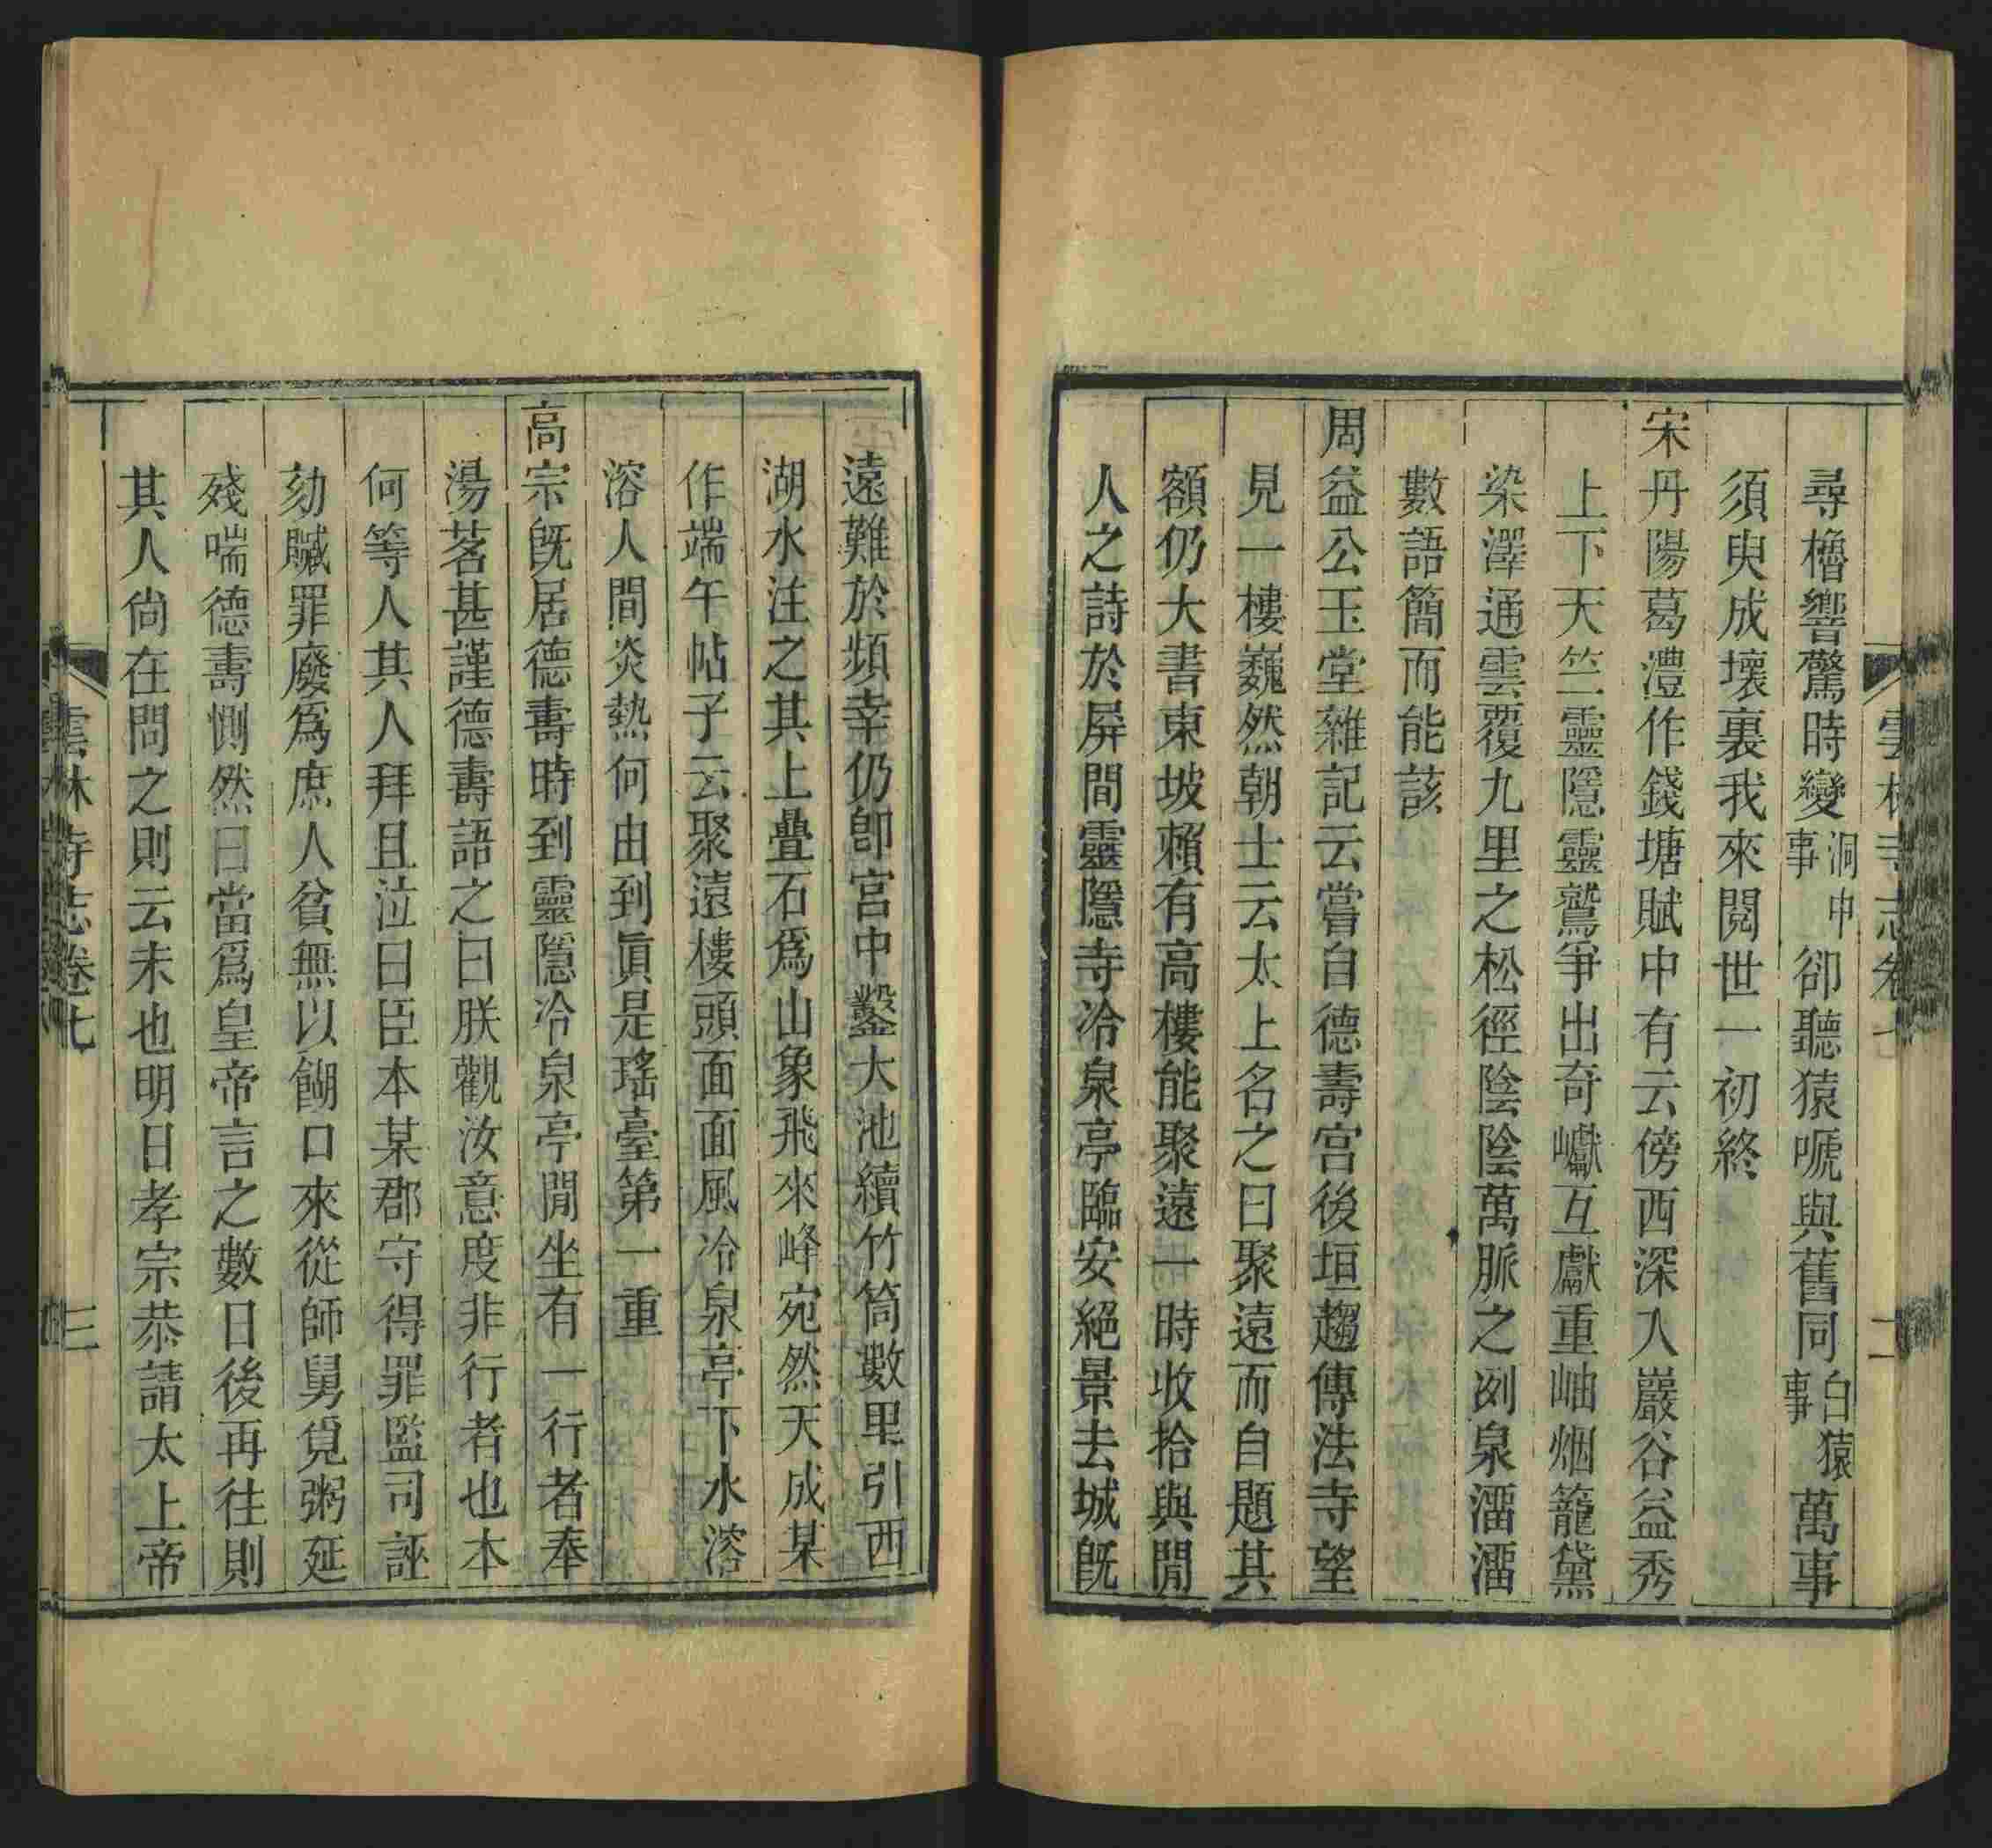 雲林寺志卷七
二
尋櫓響驚時變洞中事卻聽猿嗁與舊同白猿事萬事
須臾成壞裏我來閱世一初終
宋丹陽葛澧作錢塘賦中有云傍西深入巖谷益秀
上下天竺靈隱靈鷲爭出奇巘互獻重岫烟籠黛
染澤通雲覆九里之松徑陰陰萬脈之冽泉澑澑
數語簡而能該
周益公玉堂雜記云嘗自德壽宮後垣趨傳法寺望
見一樓巍然朝士云太上名之曰聚遠而自題其
額仍大書東坡賴有高樓能聚遠一時收拾與閒
人之詩於屏間靈隱寺冷泉亭臨安絕景去城旣
遠難於頻幸仍卽宮中鑿大池續竹筒數里引西
湖水注之其上疊石爲山象飛來峰宛然天成某
作端午帖子云聚遠樓頭面面風冷泉亭下水溶
溶人間炎熱何由到眞是瑤臺第一重
高宗旣居德壽時到靈隱冷泉亭閒坐有一行者奉
湯茗甚謹德壽語之曰朕觀汝意度非行者也本
何等人其人拜且泣曰臣本某郡守得罪監司誣
劾贓罪廢爲庶人貧無以餬口來從師舅覓粥延
殘喘德壽惻然曰當爲皇帝言之數日後再往則
其人尙在問之則云未也明日孝宗恭請太上帝
雲林寺志卷七
三